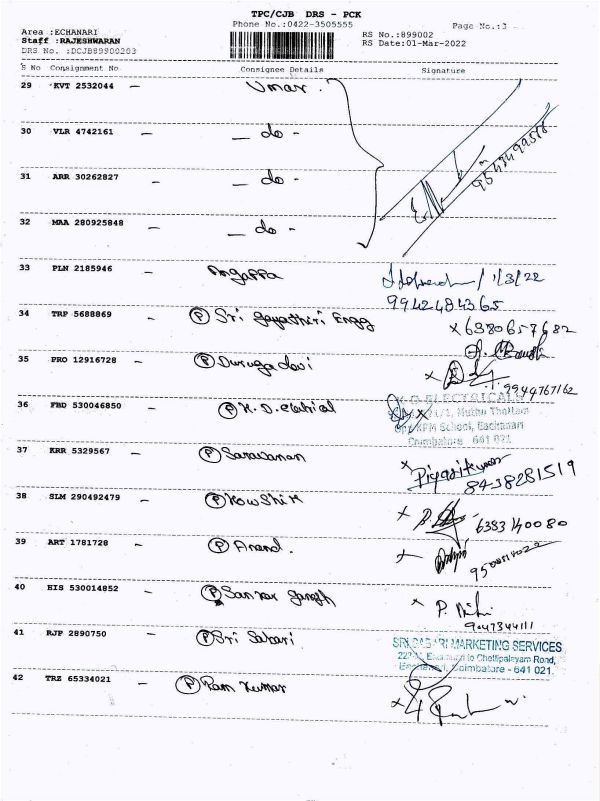 TPC/CJB DRS - PCK
Phone No.:0422-3505555
Page No.:3
Area :ECHANARI
Staff :RAJESHWARAN
DRS No. :DCJB89900203
RS No.:899002
RS Date:01-Mar-2022
S No Consignment No Consignee Details Signature
29 KVT 2532044 - Umar.
30 VLR 4742161 - - do -
31 ARR 30262827 - - do -
32 MAA 280925848 - - do -
33 PLN 2185946 - Angappa 1/3/22
9942484365
34 TRP 5688869 - (P) Sri Gayathiri Engg x 6380657682
35 PRO 12916728 - (P) Durugadevi x 9944767162
36 FBD 530046850 - (P) K.D. eletrical
K.D ELECTRICALS
Muthu Thottam
KPM School, Eachanari
Coimbatore 641 021
37 KRR 5329567 - (P) Saravanan x Piyasikumar
8438281519
38 SLM 290492479 - (P) Kowshik x 6383140080
39 ART 1781728 - (P) Anand.
40 HIS 530014852 - (P) Sankar x P.
9047344111
41 RJP 2890750 - (P) Sri Sabari
SRI SABARI MARKETING SERVICES
to Chettipalayam Road,
Eachanari, Coimbatore - 641 021.
42 TRZ 65334021 - (P) Ram Kumar x